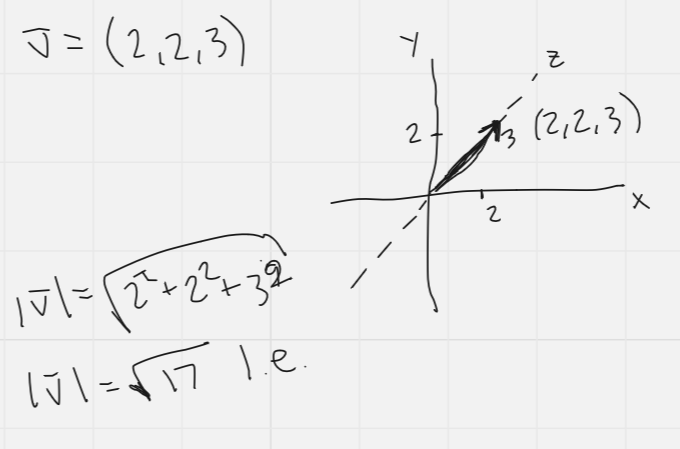 v̅ = (2,2,3)
Y
z
2
3 (2,2,3)
x
2
|v̅| = √2² + 2² + 3²
|v̅| = √17 l.e.